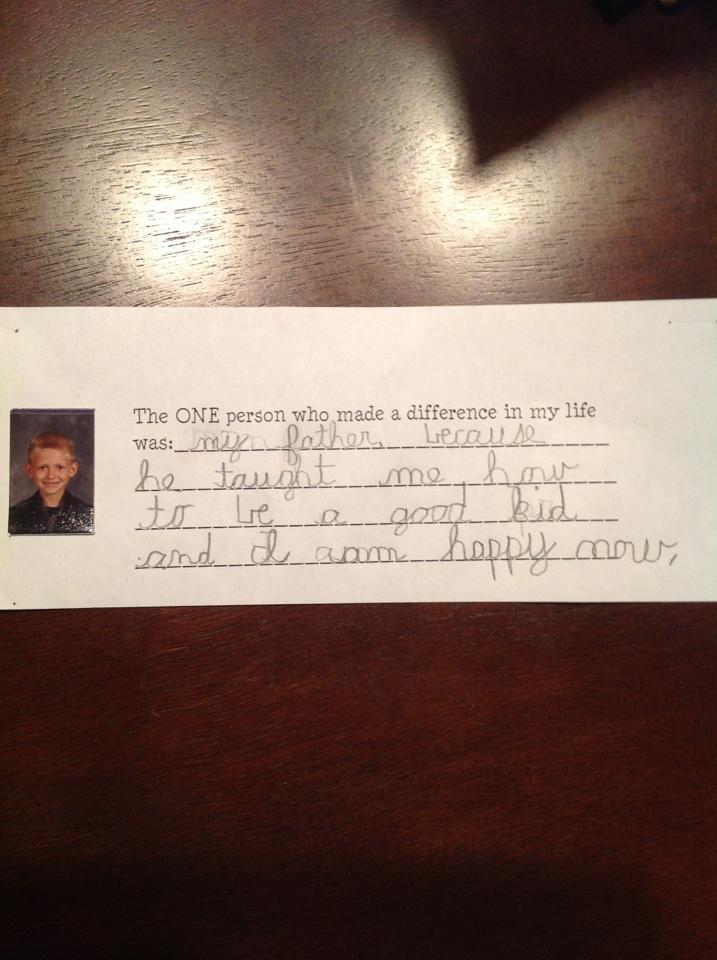 The ONE person who made a difference in my life
was: my father because
he taught me how
to be a good kid
and I am happy now.